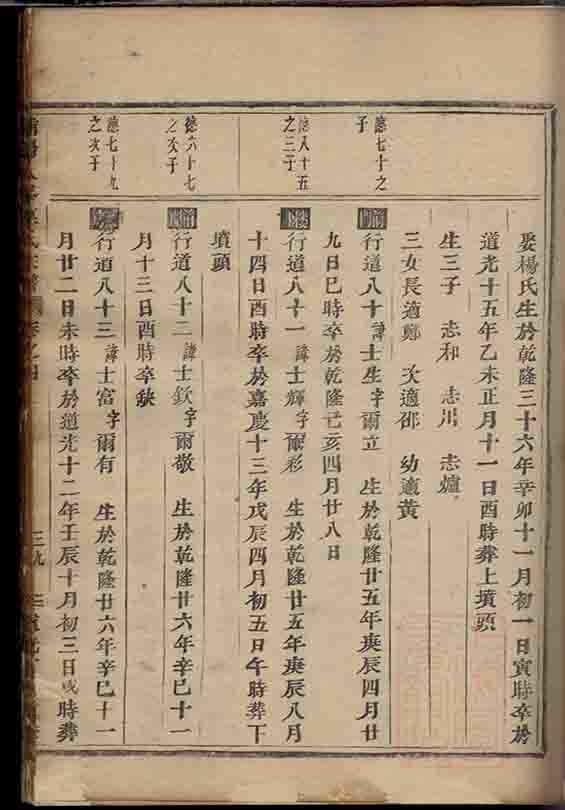 娶楊氏生於乾隆三十六年辛卯十一月初一日寅時卒於
道光十五年乙未正月十一日酉時葬上墳頭
生三子 志和 志川 志爐
三女長適鄭 次適邵 幼適黃
德七十之
子
行道八十諱士生字爾立 生於乾隆廿五年庚辰四月廿
九日巳時卒於乾隆己亥四月廿八日
德八十五
之三子
行道八十一諱士輝字爾彩 生於乾隆廿五年庚辰八月
十四日酉時卒於嘉慶十三年戊辰四月初五日午時葬下
墳頭
德六十七
之次子
行道八十二諱士欽字爾敬 生於乾隆廿六年辛巳十一
月十三日酉時卒缺
德七十九
之次子
行道八十三諱士富字爾有 生於乾隆廿六年辛巳十一
月廿二日未時卒於道光十二年壬辰十月初三日戌時葬